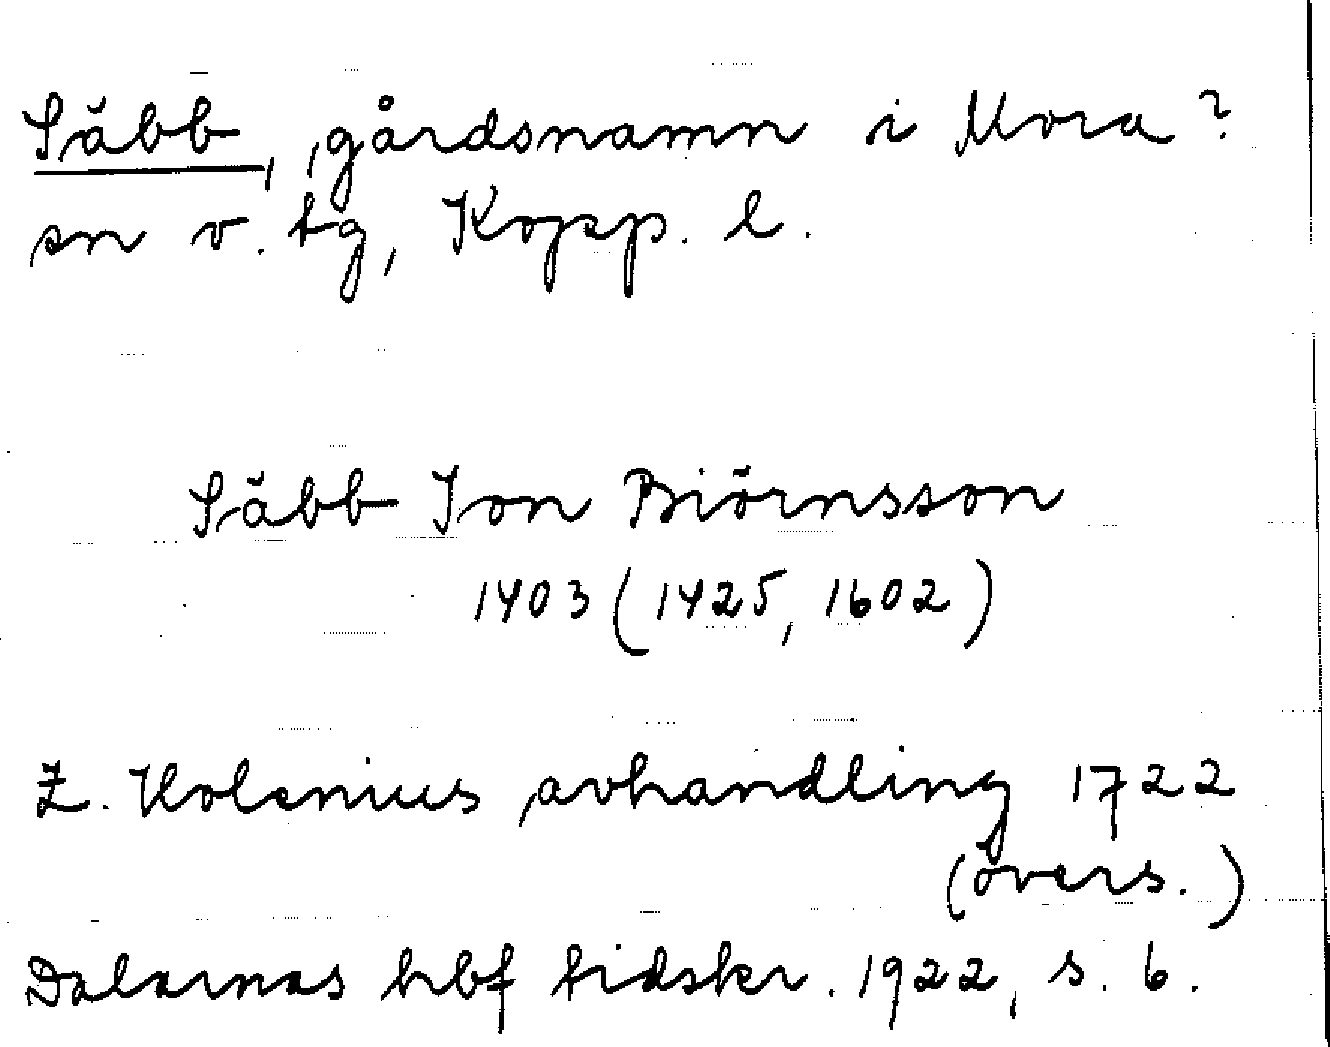 Säbb, gårdsnamn i Mora?
sn v. tg, Kopp. l.
Säbb Jon Biörnsson
1403 (1425, 1602)
Z. Holenius avhandling 1722
(övers.)
Dalarnas hbf tidskr. 1922, s. 6.